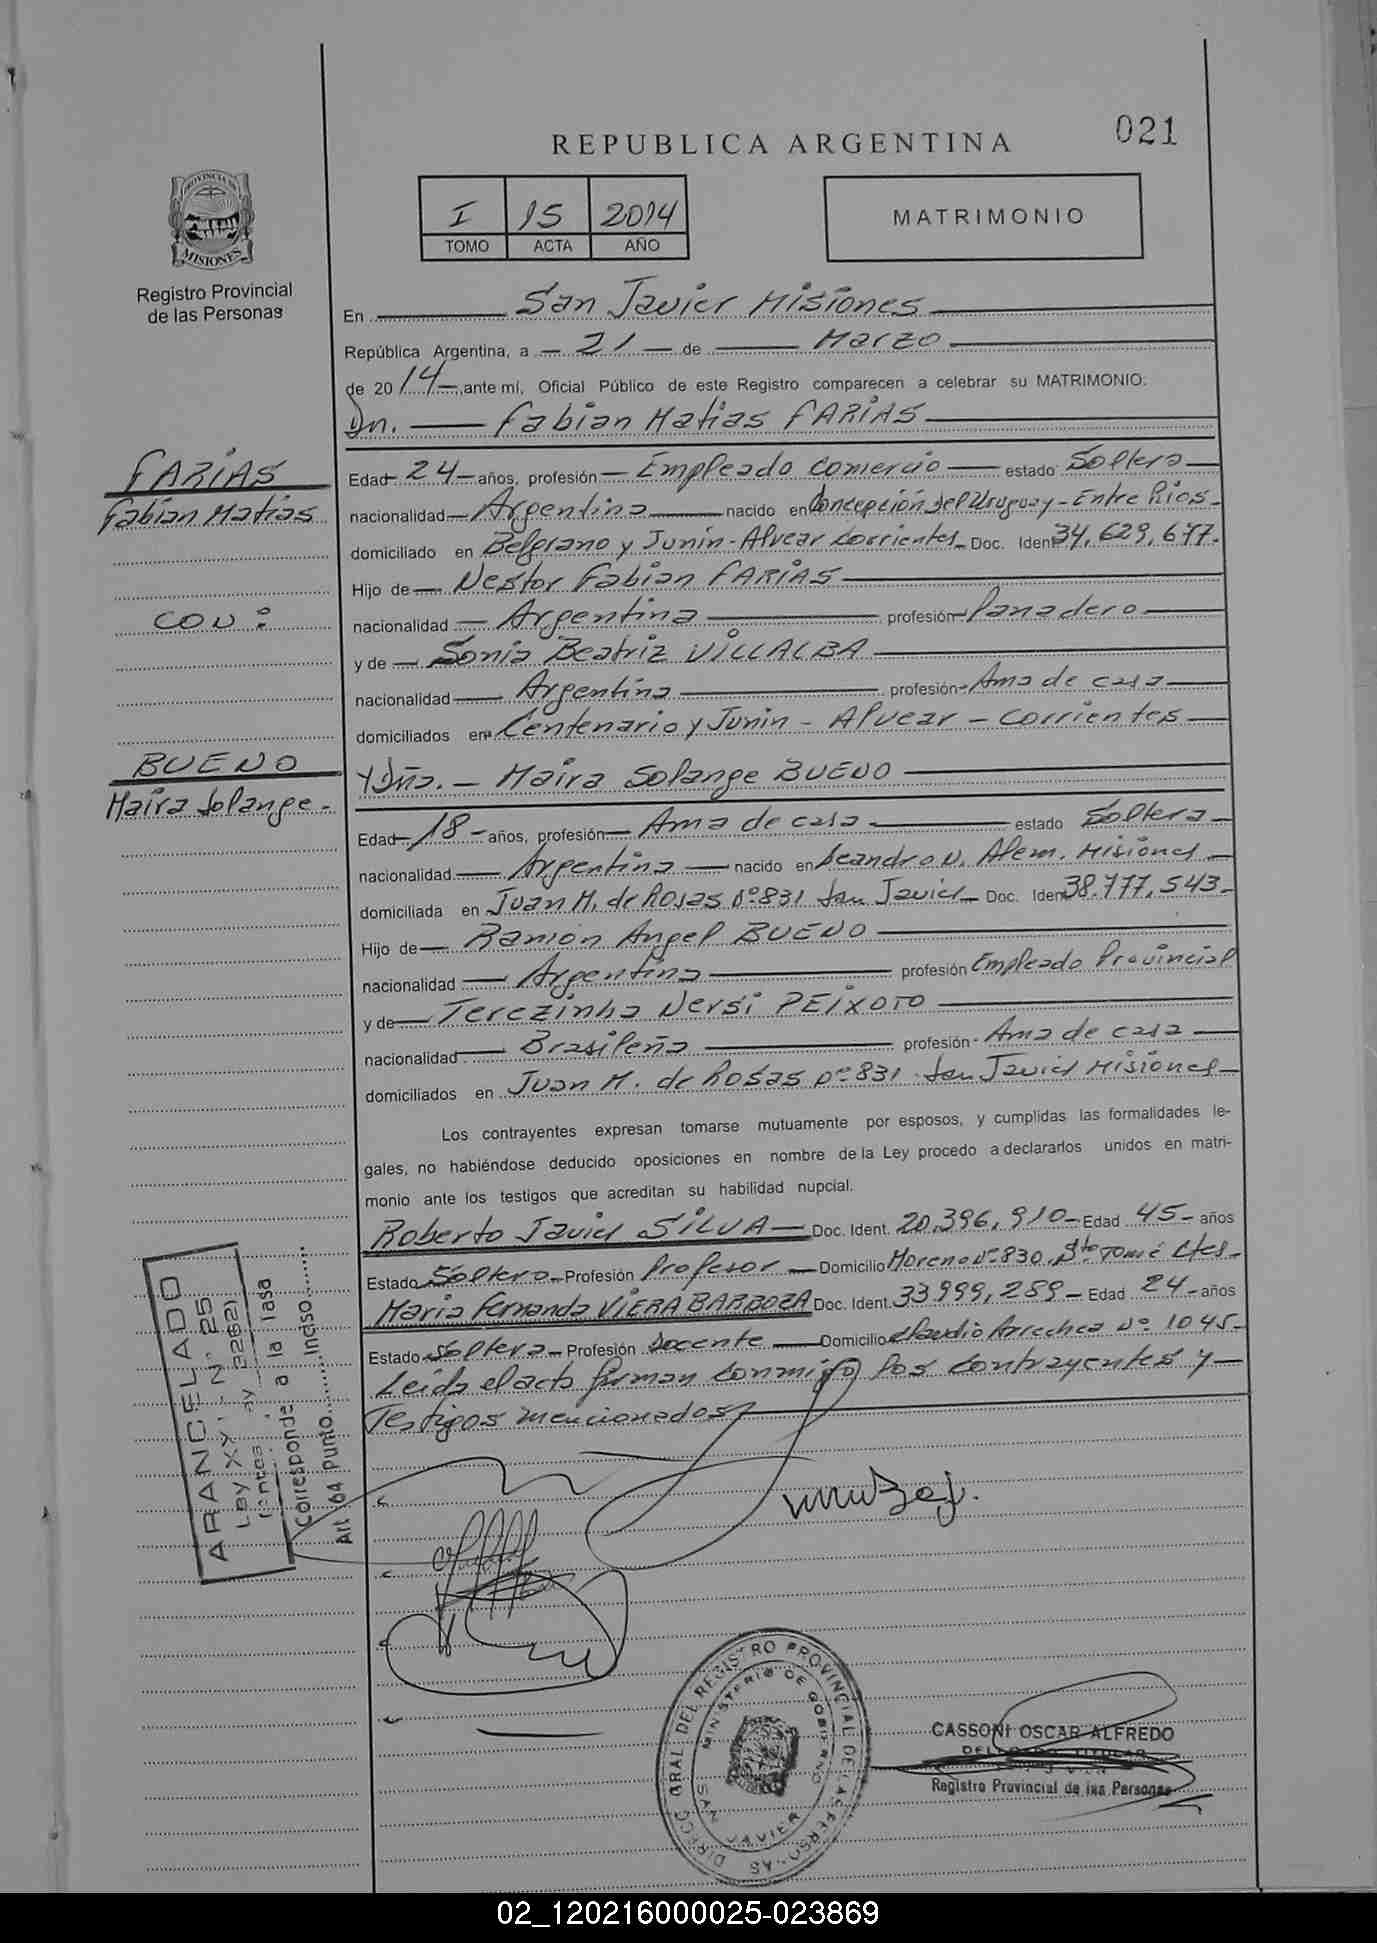 REPUBLICA ARGENTINA
021
PROVINCIA DE
MISIONES
Registro Provincial
de las Personas
I 15 2014
TOMO ACTA AÑO
MATRIMONIO
En San Javier Misiones
República Argentina, a 21 de Marzo
de 2014, ante mí, Oficial Público de este Registro comparecen a celebrar su MATRIMONIO:
Dn. Fabian Matias FARIAS
FARIAS
Fabian Matias
CON :
BUENO
Maira Solange
Edad 24 años, profesión Empleado Comercio estado Soltero
nacionalidad Argentina nacido en Concepción del Uruguay - Entre Rios
domiciliado en Belgrano y Junin - Alvear Corrientes Doc. Ident 34,629,677.
Hijo de Nestor Fabian FARIAS
nacionalidad Argentina profesión Panadero
y de Sonia Beatriz VILLALBA
nacionalidad Argentina profesión Ama de casa
domiciliados en Centenario y Junin - Alvear - Corrientes
Y Dña. Maira Solange BUENO
Edad 18 años, profesión Ama de casa estado Soltera
nacionalidad Argentina nacido en Leandro N. Alem. Misiones
domiciliada en Juan M. de Rosas Nº 831 San Javier Doc. Ident 38.777.543
Hijo de Ramón Angel BUENO
nacionalidad Argentina profesión Empleado Provincial
y de Terezinha Nersi PEIXOTO
nacionalidad Brasileña profesión Ama de casa
domiciliados en Juan M. de Rosas nº 831 San Javier Misiones
Los contrayentes expresan tomarse mutuamente por esposos, y cumplidas las formalidades le-
gales, no habiéndose deducido oposiciones en nombre de la Ley procedo a declararlos unidos en matri-
monio ante los testigos que acreditan su habilidad nupcial.
Roberto Javier SILVA Doc. Ident. 20,396,910 Edad 45 años
Estado Soltero Profesión Profesor Domicilio Moreno Nº 830, Sto Tomé Ctes
Maria Fernanda VIERA BARBOZA Doc. Ident. 33999,289 Edad 24 años
Estado Soltera Profesión Docente Domicilio Claudio Arrechea Nº 1045
Leida el acta firman conmigo los contrayentes y
Testigos mencionados
ARANCELADO
LEY XXI - Nº 25
Corresponde a la Tasa
Art. 64 Punto......Inciso......
DIRECC GRAL DEL REGISTRO PROVINCIAL DE LAS PERSONAS
MINISTERIO DE GOBIERNO
SAN JAVIER
CASSONI OSCAR ALFREDO
Registro Provincial de las Personas
02_120216000025-023869